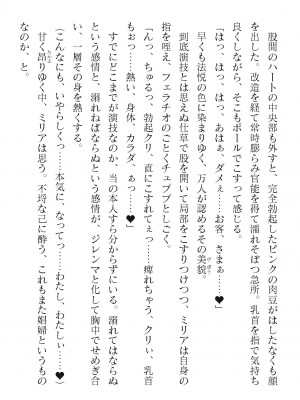 股間のハートの中央部も外すと、完全勃起したピンクの肉豆がはしたなくも顔
を出した。改造を経て常時膨らみ官能を得て濡れそぼつ急所。乳首を指で気持ち
良くしながら、そこもポールでこすって感じる。
「はっ、はっ、はっ、あはぁ、ダメぇ……お客、さまぁ……♥」
早くも法悦の色に染まりゆく、万人が認めるその美貌。
びぼう
到底演技とは思えぬ仕草で股を開いて局部をこすりつけつつ、ミリアは自身の
指を咥え、フェラチオのごとくチュプチュプとしごく。
「んっ、ちゅるっ、勃起クリ、直にこすれてぇっ……痺れちゃう、クリぃ、乳首
もっ……熱い、身体、カラダ、ぁっ……♥」
すでにどこまでが演技なのか、当の本人すら分からずにいる。溺れてはならぬ
という感情と、溺れねばならぬという感情が、ジレンマと化して胸中でせめぎ合
い、一層その身を熱くする。
（こんなにも、いやらしくっ……本気に、なってっ……わたし、わたしぃ……♥）
甘く昂りゆく中、ミリアは思う。不埒な己に酔う、これもまた娼婦というもの
なのか、と。